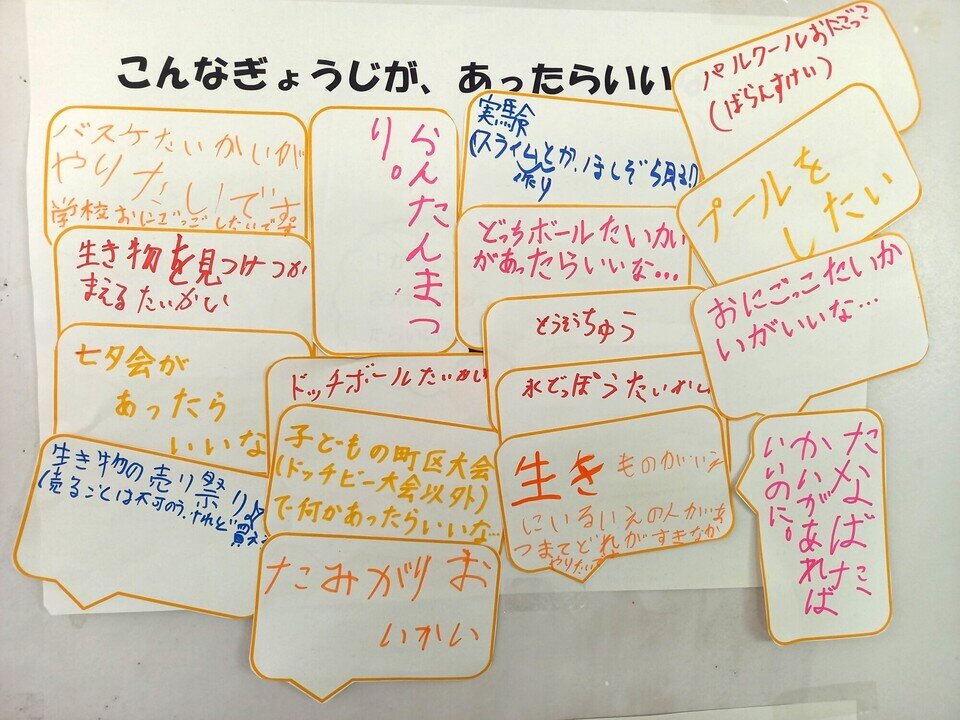 こんなぎょうじが、あったらいい
バスケたいかいが
やりたいです
学校おにごっこしたいです
らんたんまつ
り。
実験
(スライムとか、ほしぞら見る!)
作り
パルクールおにごっこ
(ばらんすけい)
プールを
したい
生き物を見つけつか
まえるたいかい
どっちボールたいかい
があったらいいな…
おにごっこたいか
いがいいな…
とうそうちゅう
七夕会が
あったら
いいな
ドッチボールたいかい
水でっぽうたいかい
生き物の売り祭り
(売ることは不可のう、けれど買え
子どもの町区大会
(ドッチビー大会以外)
で何かあったらいいな…
生きものがいえ
にいるいえの人があ
つまてどれがすきなか
やりたい
たなばたこ
かいがあれば
いいのに。
おりがみた
いかい